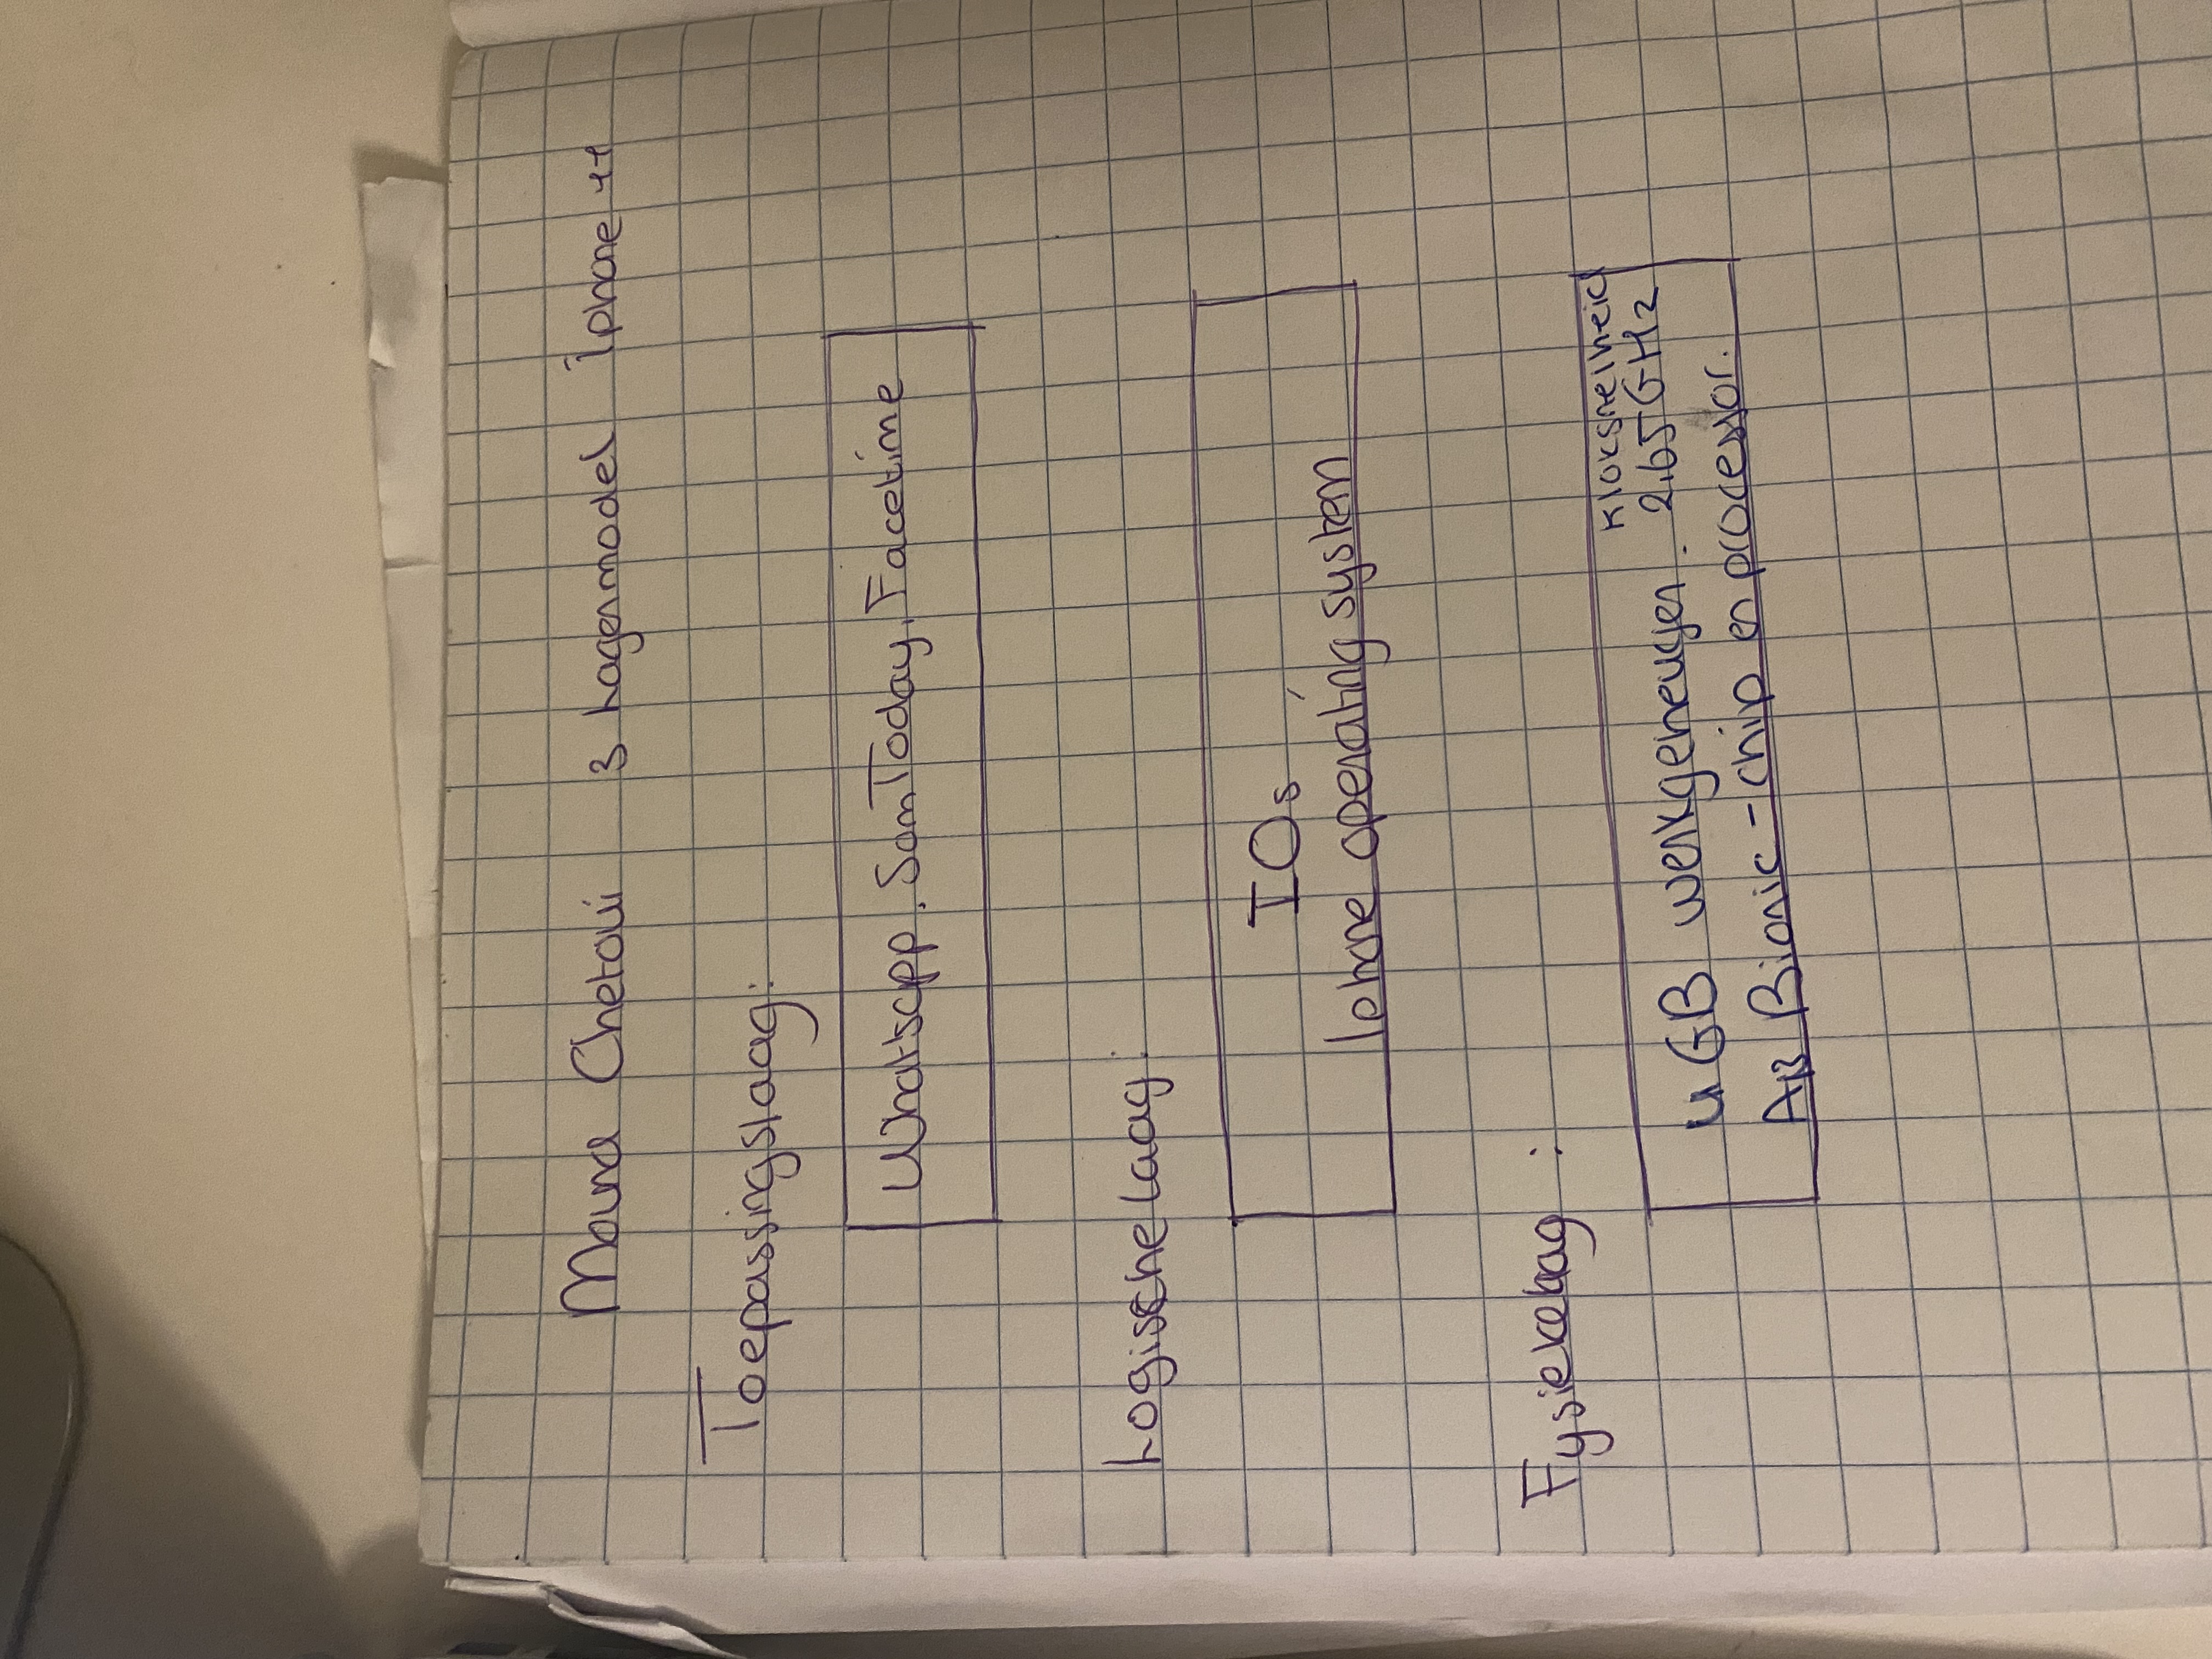 Mouna Chetoui 3 lagenmodel iphone 11
Toepassingslaag:
Whatsapp, SomToday, Facetime
Logische laag:
IOs
Iphone operating system
Fysieke laag :
Kloksnelheid
4 GB werkgeheugen. 2,65 GHz
A13 Bionic-chip en processor.